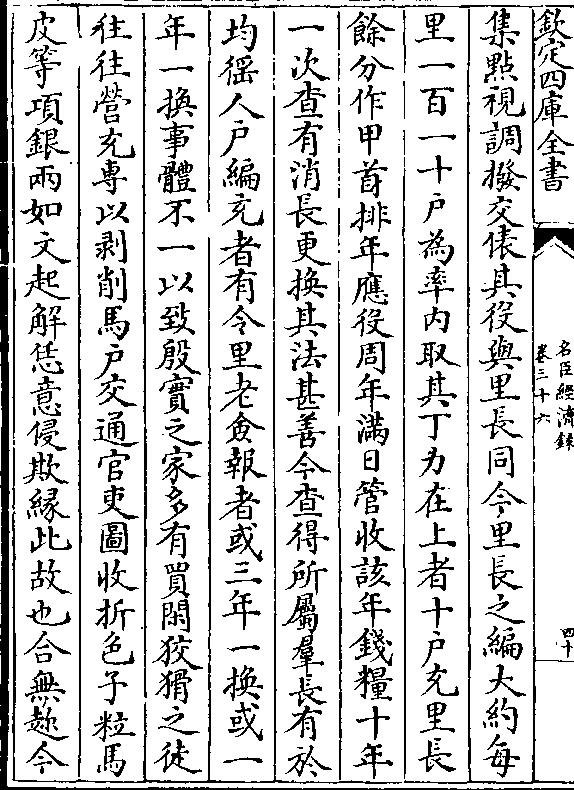 欽定四庫全書
名臣經濟錄
卷三十六
四十
集點視調撥交俵其役與里長同今里長之編大約每
里一百一十户為率内取其丁力在上者十户充里長
餘分作甲首排年應役周年滿日管收該年錢糧十年
一次查有消長更換其法甚善今查得所屬羣長有於
均徭人户編充者有令里老僉報者或三年一換或一
年一換事體不一以致殷實之家多有買閑狡猾之徒
往往營充専以剥削馬户交通官吏圖收折色子粒馬
皮等項銀兩如文起解恁意侵欺緣此故也合無趂今